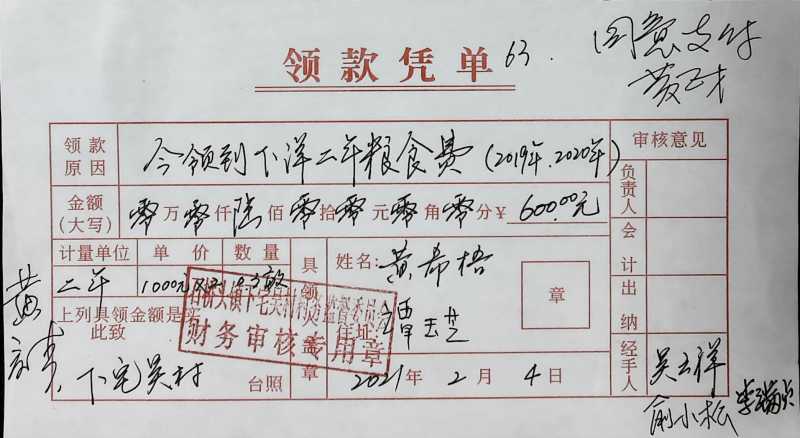 领款凭单 63.
同意支付
领款原因 今领到下洋二年粮食费(2019年.2020年)
审核意见
金额(大写) 零万零仟陆佰零拾零元零角零分¥ 600.00元
负责人
计量单位 单价 数量
二年 1000元 0.3敏
具领人盖章
姓名: 黄希梧
住址
章
会计
上列具领金额是实
此致
石桥头镇下宅吴村村务监督委员会
财务审核专用章
出纳
下宅吴村 台照
2021年2月4日
经手人 吴云祥
俞小松